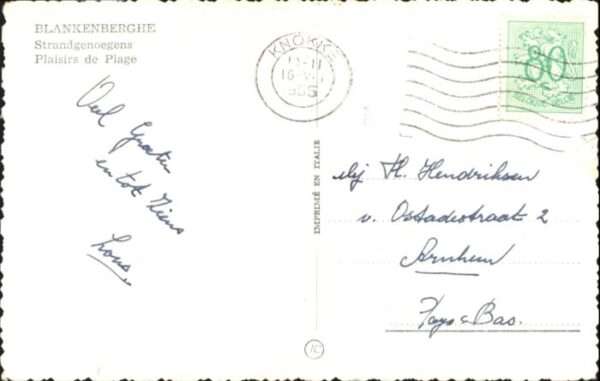 BLANKENBERGHE
Strandgenoegens
Plaisirs de Plage
Veel Groeten
en tot Ziens
KNOKKE
80
BELGIQUE BELGIE
IMPRIMÉ EN ITALIE
H. Hendriksen
v. Ostadestraat 2
Arnhem
Pays Bas.